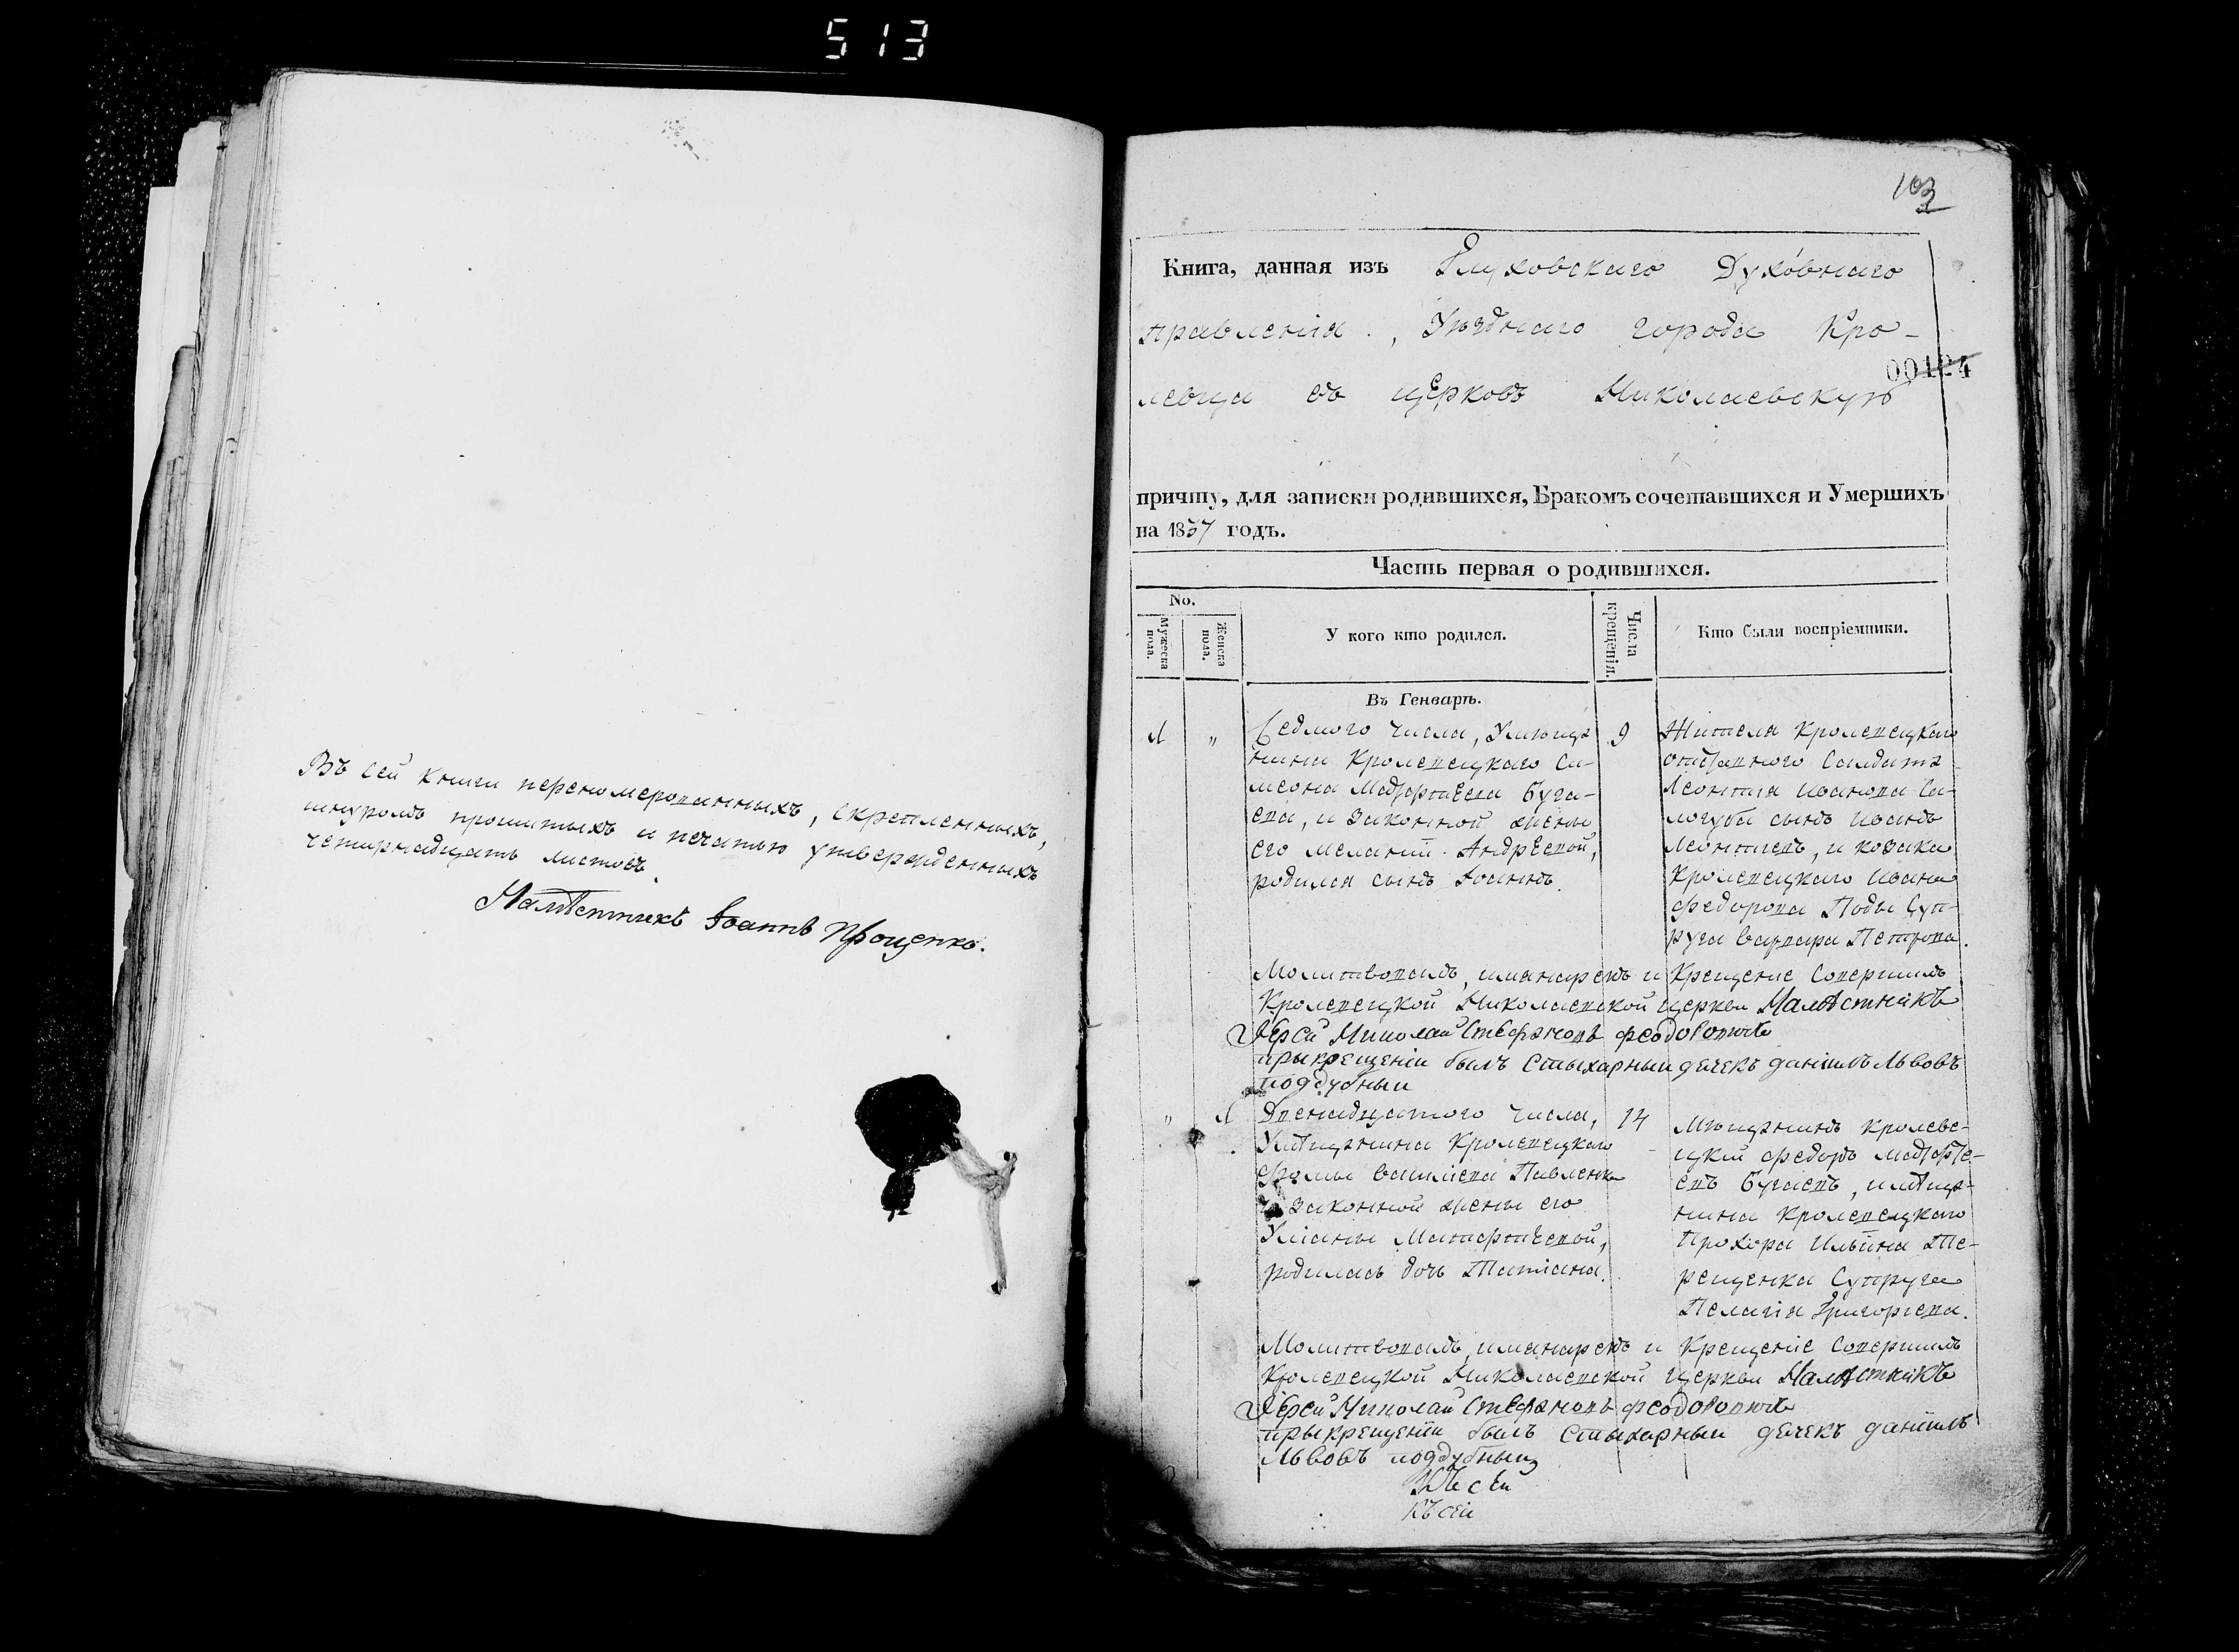 513
Въ сей книги переномерованныхъ, скрепленныхъ,
шнуромъ прошитыхъ и печатью утвержденныхъ
четырнадцать листовъ.
Намѣстникъ Іоаннъ Проценко.
103
Книга, данная изъ Глуховскаго Духовнаго
правленія, Уѣзднаго города Кро-
00124
левца въ церковь Николаевскую
причту, для записки родившихся, Бракомъ сочетавшихся и Умершихъ
на 1837 годъ.
Часть первая о родившихся.
No.
Мужеска пола.
Женска пола.
У кого кто родился.
Числа крещенія.
Кто были воспріемники.
Въ Генварѣ.
1 „ Седмого числа, Умѣща 9
нина Кролевецкаго Си-
меона Мадфѣева Буга-
ева, и законной жены
его Меланий Андрѣевой,
родился сынъ Іоаннъ.
Жителя Кролевецкаго
отставного Салдата
Леонтія Иванова Са-
могуба сынъ Иванъ
Леонтіевъ, и козака
Кролевецкаго Ивана
Федорова Поды Суп-
руга Варвара Петрова.
Молитвовалъ, имянарекъ и Крещение Совершилъ
Кролевецкой Николаевской церкви Намѣстникъ
Іерей Николай Стефановъ Феодоровичъ
прыкрещеніи былъ Стыхарный дячекъ данііилъ Львовъ
поддубный
„ 1 Двенадцатого числа, 14
Умѣщанина Кролевецкаго
Фомы Василіева Павленка
и законной жены его
Уліаны Матфѣевой,
родилась дочь Татіана.
Мѣщанинъ Кролеве-
цкій Федоръ Мадфѣ-
евъ Бугаевъ, имѣща-
нина Кролевецкаго
Прохора Ильина Те-
рещенка Супруга
Пелагія Григоріева.
Молитвовалъ, имянарекъ и Крещеніе Совершилъ
Кролевецкой Николаевской церкви Намѣстникъ
Іерей Николай Стефановъ Феодоровичъ
прыкрещеніи былъ Стыхарный дячекъ данііилъ
Львовъ поддубный
Къ сей